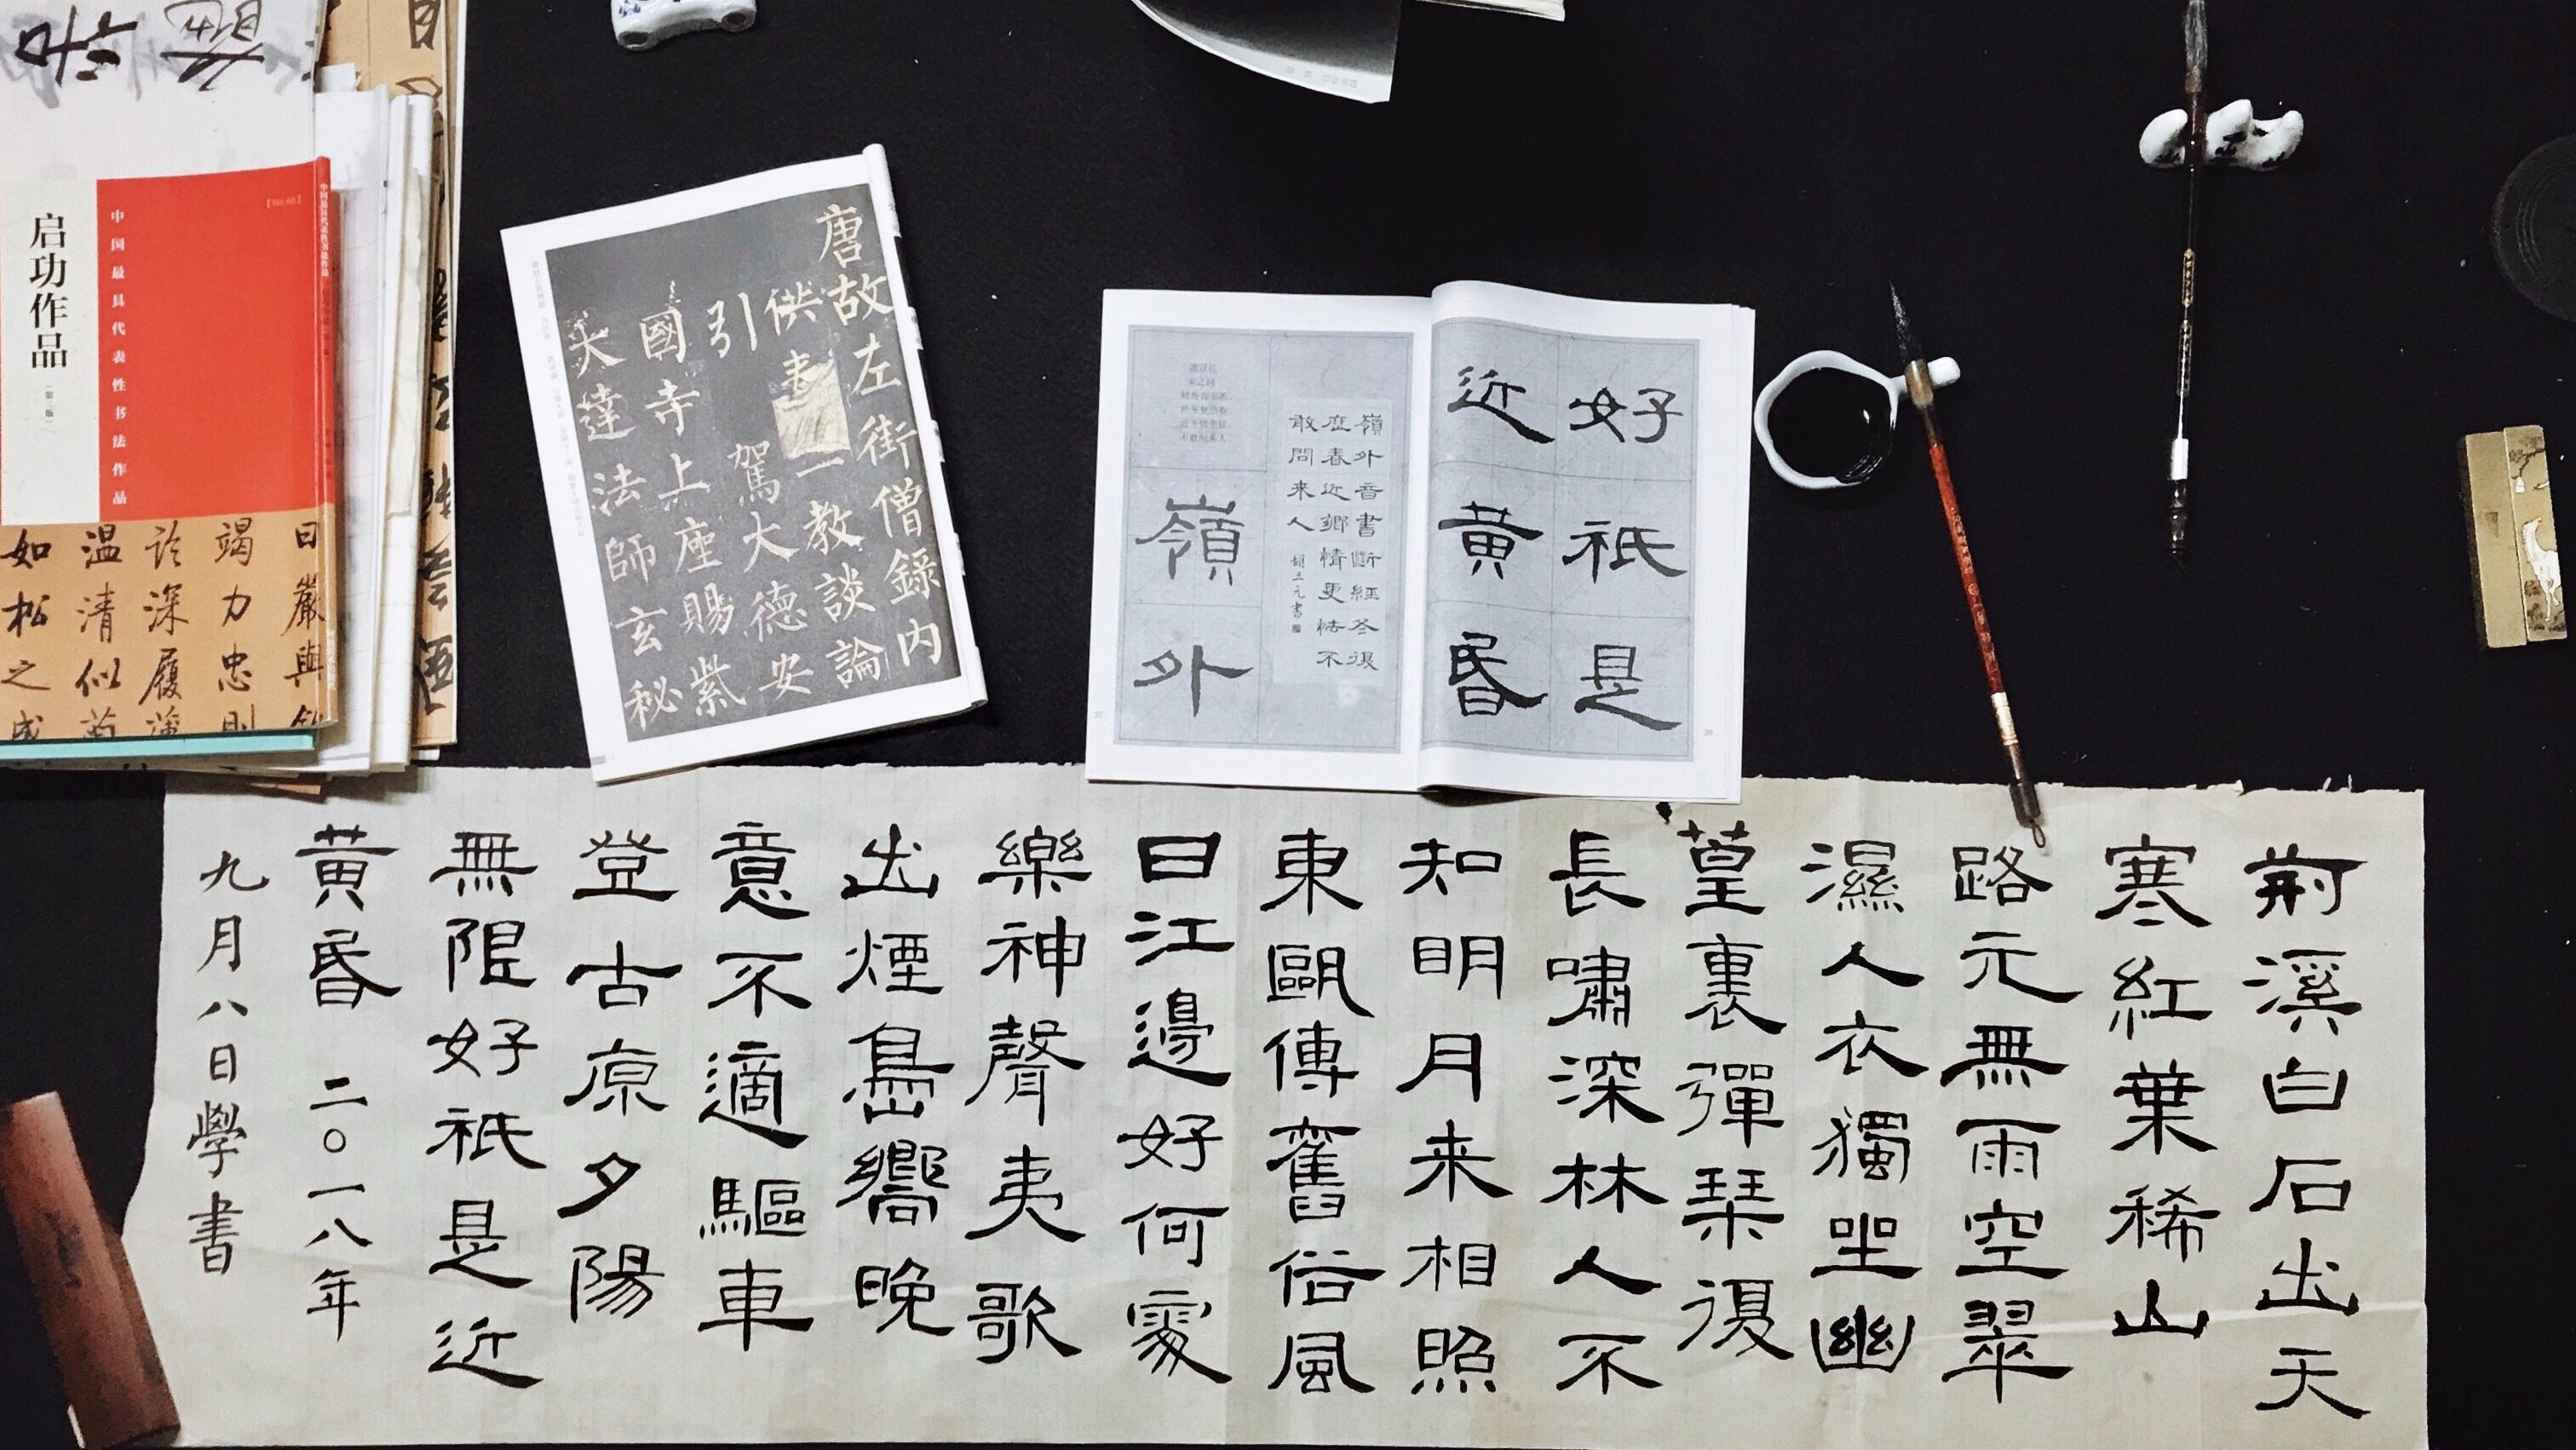 启功作品
(第二版)
中国最具代表性书法作品
曰嚴與
竭力忠則
深履薄
温清似
如松之
唐故左街僧錄內
供奉
一教談論
引
駕大德安
國寺上座賜紫
大達法師玄秘
好祇是
近黄昏
嶺外音書斷經冬復
歷春近鄉情更怯不
敢問来人
嶺外
荆溪白石出天
寒紅葉稀山
路元無雨空翠
濕人衣獨坐幽
篁裏彈琴復
長嘯深林人不
知明月来相照
東甌傳舊俗風
日江邊好何處
樂神聲夷歌
出煙島嚮晚
意不適驅車
登古原夕陽
無限好祇是近
黄昏 二〇一八年
九月八日學書